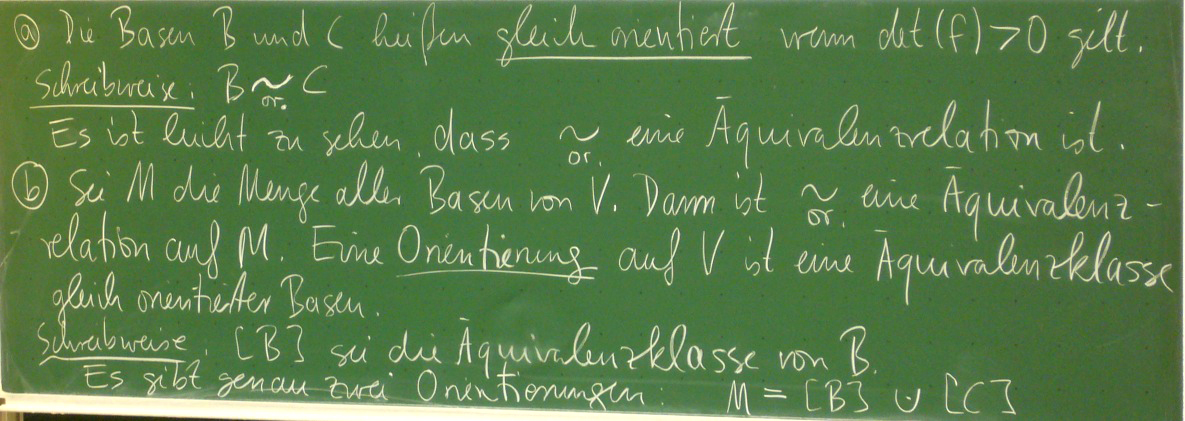 ⓐ Die Basen B und C heißen gleich orientiert wenn det(f) > 0 gilt.
Schreibweise: B ~ C
or.
Es ist leicht zu sehen, dass ~ eine Äquivalenzrelation ist.
or.
ⓑ Sei M die Menge aller Basen von V. Dann ist ~ eine Äquivalenz-
or.
relation auf M. Eine Orientierung auf V ist eine Äquivalenzklasse
gleich orientierter Basen.
Schreibweise: [B] sei die Äquivalenzklasse von B.
Es gibt genau zwei Orientierungen: M = [B] ∪ [C]